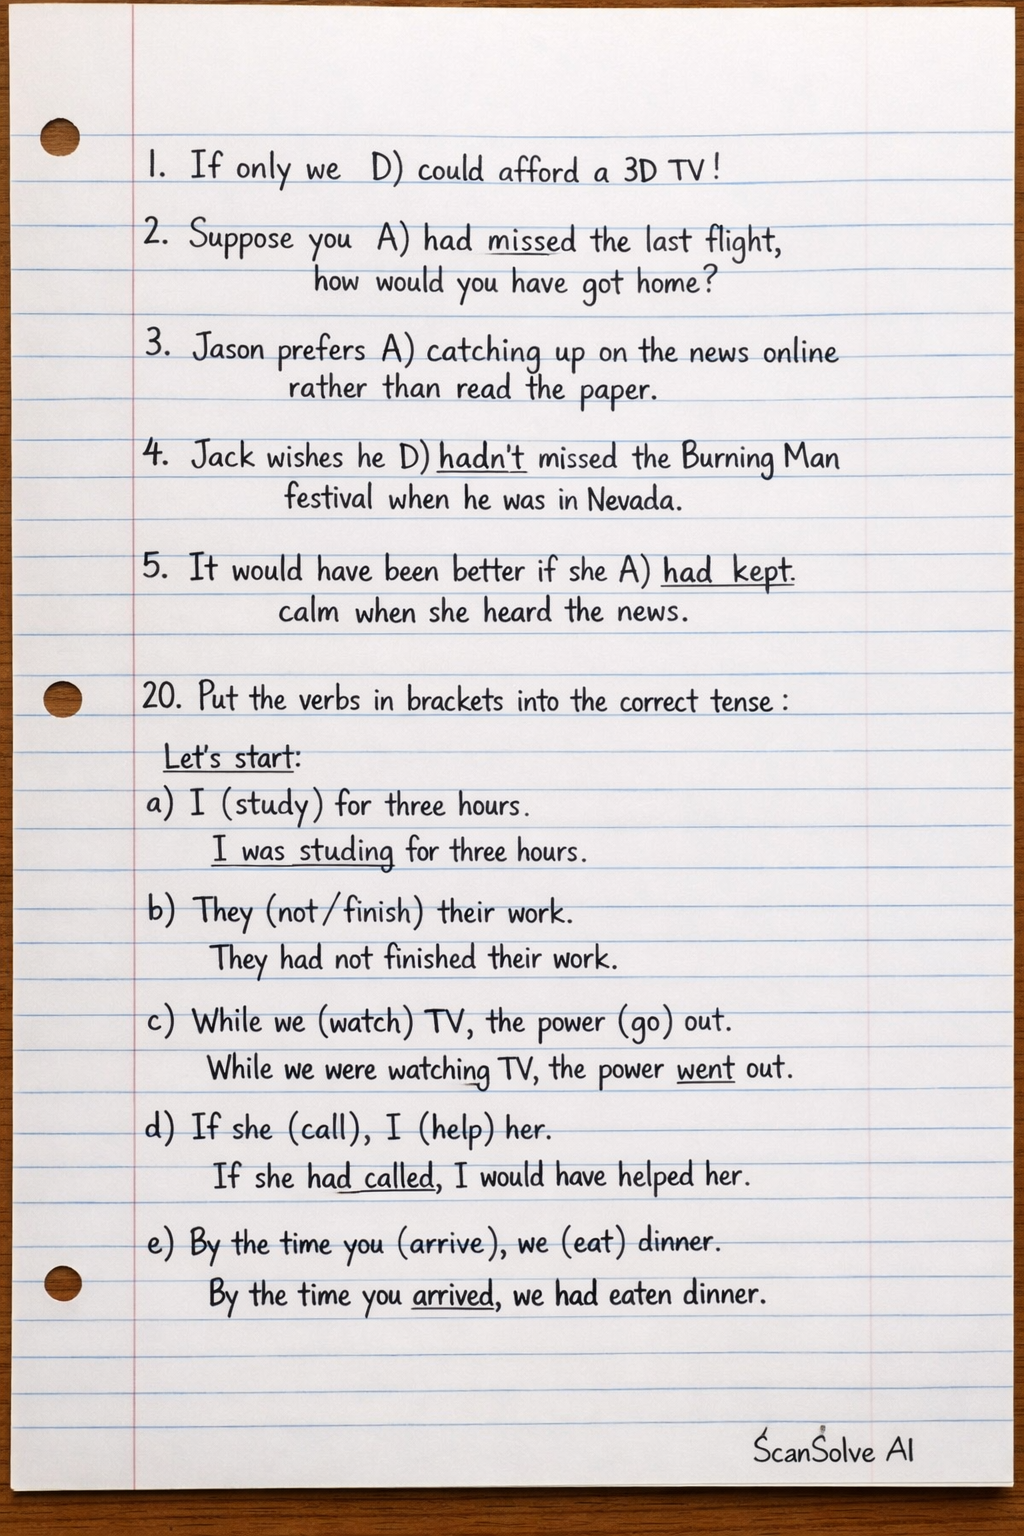 1. If only we D) could afford a 3D TV!
2. Suppose you A) had missed the last flight,
how would you have got home?
3. Jason prefers A) catching up on the news online
rather than read the paper.
4. Jack wishes he D) hadn't missed the Burning Man
festival when he was in Nevada.
5. It would have been better if she A) had kept.
calm when she heard the news.
20. Put the verbs in brackets into the correct tense :
Let's start:
a) I (study) for three hours.
I was studing for three hours.
b) They (not/finish) their work.
They had not finished their work.
c) While we (watch) TV, the power (go) out.
While we were watching TV, the power went out.
d) If she (call), I (help) her.
If she had called, I would have helped her.
e) By the time you (arrive), we (eat) dinner.
By the time you arrived, we had eaten dinner.
ScanSolve AI